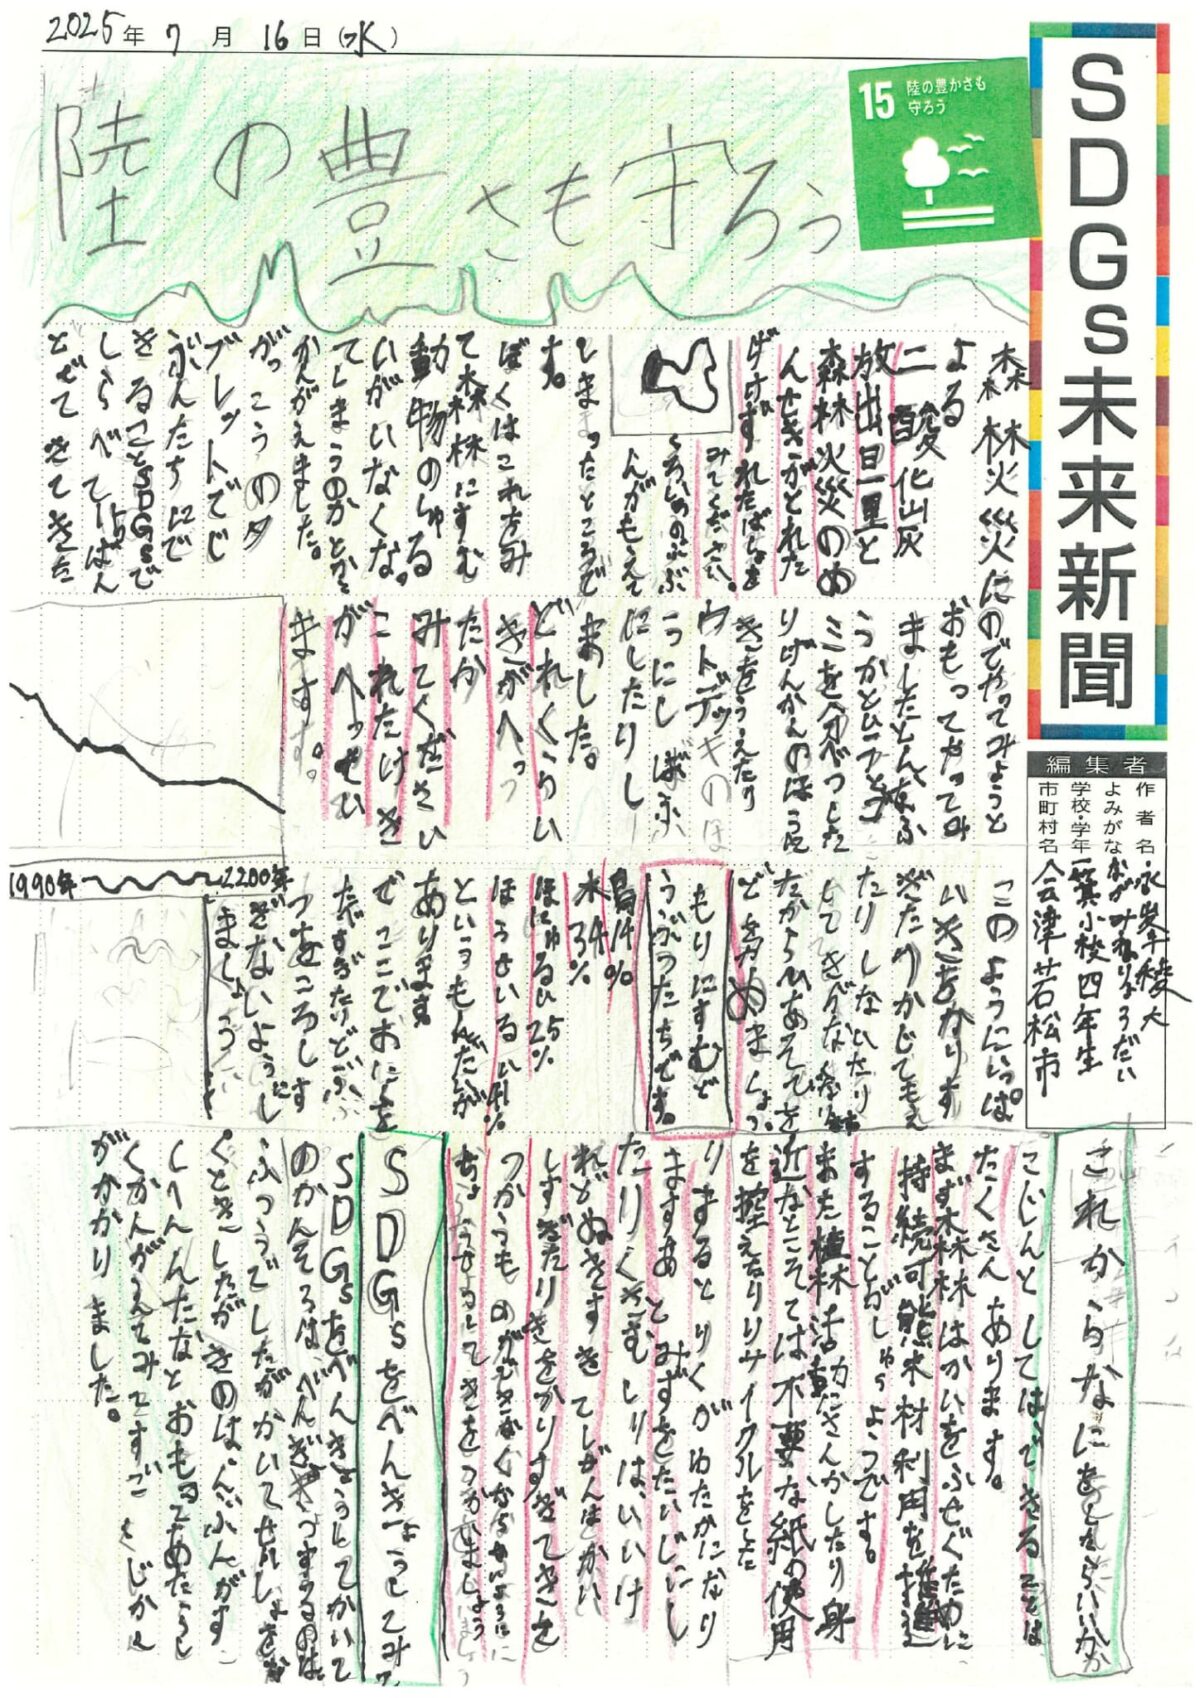 2025年 7月 16日(水)
SDGs未来新聞
15 陸の豊かさも
守ろう
陸の豊さも守ろう
編集者
作者名
よみがな ながみねりょうだい
学校・学年 一箕小校四年生
市町村名 会津若松市
森林火災に
よる
二酸化炭
放出量と
森林火災のめ
んせきがとれた
げすれたばしょを
みてください。
しまったところで
す。
ぼくはこれをみ
て森林にすむ
動物のしゅる
いがいなくな
てしまうのかとか
かんがえました。
がっこうのタ
ブレットでじ
ぶんたちにで
きることSDGsで
しらべて一ばん
とでてきてきた
のでやってみようと
おもってやってみ
ましたどんなふ
うかというと
ミを分べつした
りげんかんのほうに
きをうえたり
ウトデッキのほ
うにしばふ
にしたりし
ました。
どれくらい
きがへっ
たか
みてください
これだけき
がへってい
ます。
1990年
2200年
このようにいっぱ
いきをかります
ぎたりかじでもえ
たりしないたり
してきがなくなり
たからひあそびを
どをやめましょう
もりにすむど
うぶつたちです。
鳥14%
木34%
ほにゅうるい25%
ほうせいるい41%
といっもんだいが
あります
でここでおにを
たがすがたけどぶ
つをころしす
ぎないように
ましょう
これからなにをしたらいいか
こじんとしてはできることは
たくさんあります。
まず森林はかいをふせぐために
持続可能木材利用を推進
することがじゅうようです。
また植林活動にさんかしたり身
近なとこては不要な紙の使用
を控えたりリサイクルをした
りまするとりくがゆたかになり
ますあとみずをたいじにし
たりくさむしりはいいけ
れどぬきすきてしぜんはかい
しすぎたりきをかりすぎてきを
つかうものができなくならないように
ちょうせつしてきをつかいましょう
SDGsをべんきょうしてみて
SDGsをべんきょうしてかいて
のかんそうは、べんきょうするのは
ふつうでしたがかいてせいしょを
くときしたがきのは、んぶんがす
しへんたなとおもってあたらし
くかんがえてみてすごくじかん
がかかりました。